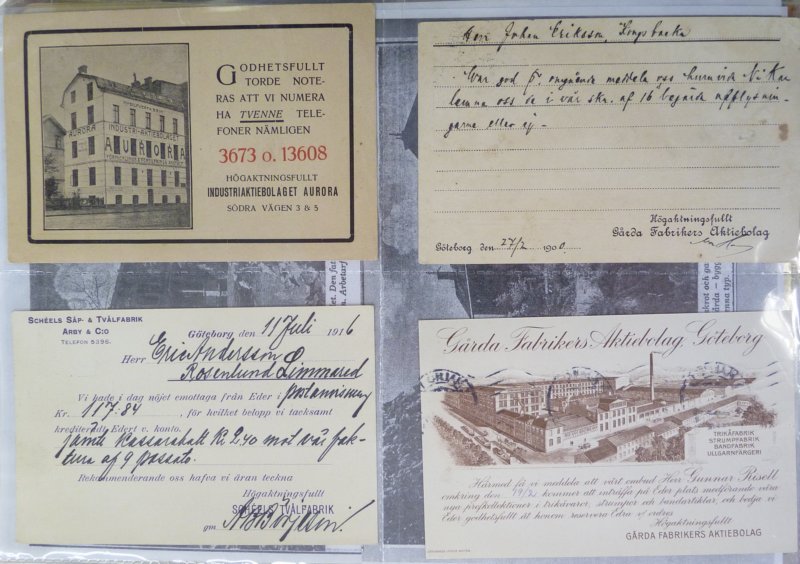 GODHETSFULLT
TORDE NOTE-
RAS ATT VI NUMERA
HA TVENNE TELE-
FONER NÄMLIGEN
3673 o. 13608
HÖGAKTNINGSFULLT
INDUSTRIAKTIEBOLAGET AURORA
SÖDRA VÄGEN 3 & 5
AURORA
INDUSTRI-AKTIEBOLAGET
AURORA
Herr Johan Eriksson, Kongsbacka
Var god omgående meddela oss huruvida Ni kan
lemna oss de i vår skr. af 16 begärda upplysnin-
garne eller ej -
Högaktningsfullt
Gårda Fabrikers Aktiebolag
Göteborg den 27/2 1900
SCHÉELS SÅP- & TVÅLFABRIK
ARBY & C:O
TELEFON 5395.
Göteborg den 11 Juli 1916
Herr Eric Andersson
Rosenlund Limmared
Vi hade i dag nöjet emottaga från Eder i postanvisning
Kr. 117.84, för hvilket belopp vi tacksamt
krediterat Edert v. konto.
jämte kassarabatt Kr 2,40 mot vår fak-
tura af 9 passato.
Rekommenderande oss hafva vi äran teckna
Högaktningsfullt
SCHÉELS TVÅLFABRIK
gm
Gårda Fabrikers Aktiebolag, Göteborg
TRIKÅFABRIK
STRUMPFABRIK
BANDFABRIK
ULLGARNFÄRGERI
Härmed få vi meddela att vårt ombud Herr Gunnar Risell
omkring den 19/2 kommer att inträffa på Eder plats medförande våra
nya profkollektioner i trikåvaror, strumpor och bandartiklar, och bedja vi
Eder godhetsfullt åt honom reservera Edra v/ ordres
Högaktningsfullt
GÅRDA FABRIKERS AKTIEBOLAG